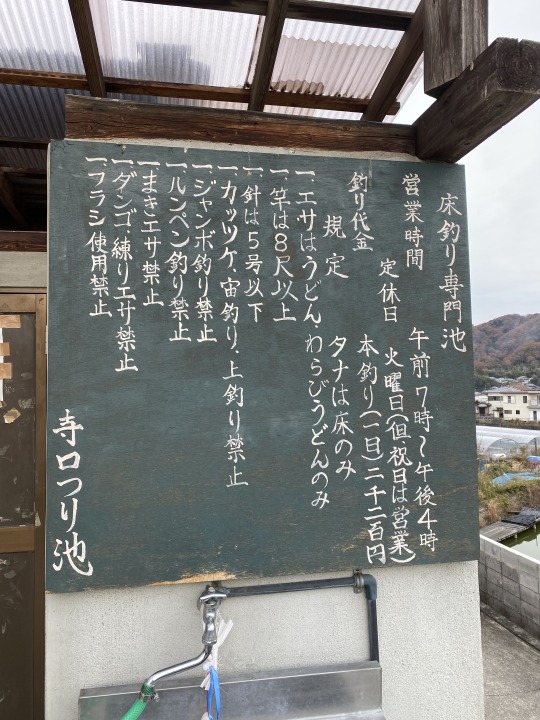 床釣り専門池
営業時間 午前7時~午後4時
定休日 火曜日(但、祝日は営業)
釣り代金 本釣り(一日)二千二百円
規定 タナは床のみ
一.エサはうどん、わらびうどんのみ
一.竿は8尺以上
一.針は5号以下
一.カッツケ、宙釣り、上釣り禁止
一.ジャンボ釣り禁止
一.ルンペン釣り禁止
一.まきエサ禁止
一.ダンゴ、練りエサ禁止
一.フラシ使用禁止
寺口つり池